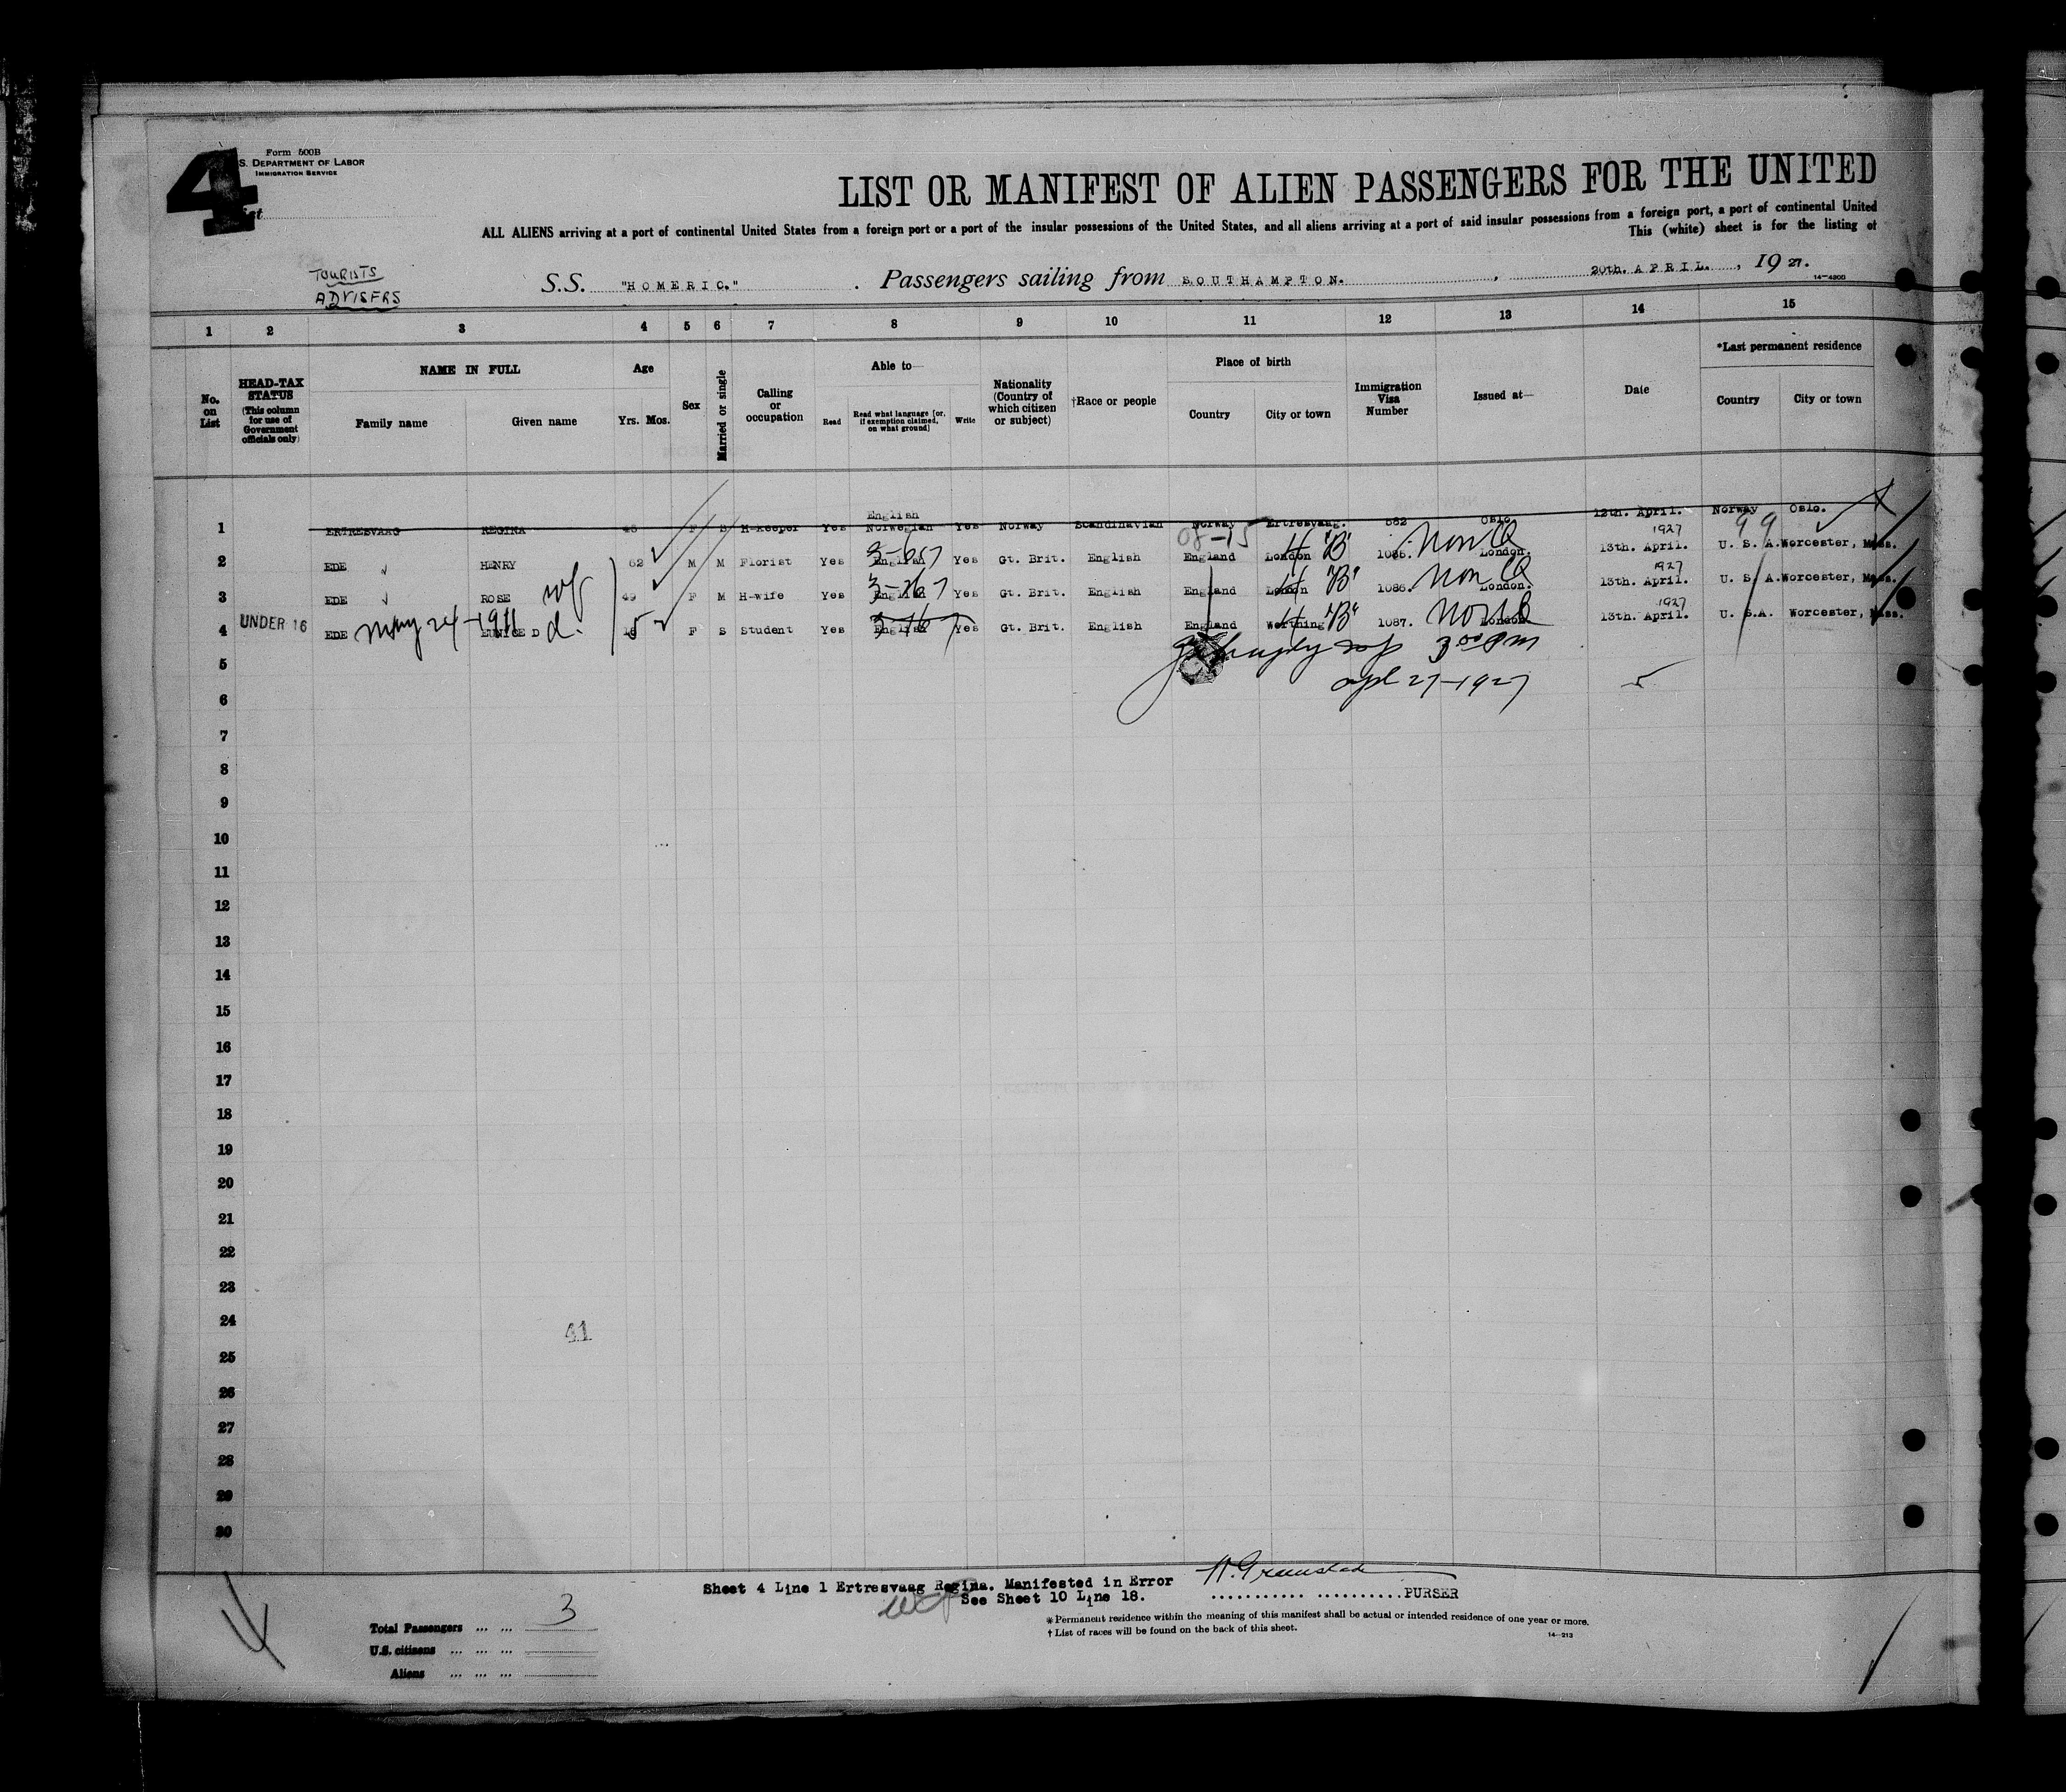 4
Form 500B
S. DEPARTMENT OF LABOR
IMMIGRATION SERVICE
LIST OR MANIFEST OF ALIEN PASSENGERS FOR THE UNITED
ALL ALIENS arriving at a port of continental United States from a foreign port or a port of the insular possessions of the United States, and all aliens arriving at a port of said insular possessions from a foreign port, a port of continental United
This (white) sheet is for the listing of
TOURISTS
ADVISERS
S.S. "HOMERIC." . Passengers sailing from SOUTHAMPTON. , 20th. APRIL. , 19 27.
14-4200
1 2 3 4 5 6 7 8 9 10 11 12 13 14 15
No. on List
HEAD-TAX STATUS (This column for use of Government officials only)
NAME IN FULL
Family name Given name
Age
Yrs. Mos.
Sex
Married or single
Calling or occupation
Able to—
Read Read what language [or, if exemption claimed, on what ground] Write
Nationality (Country of which citizen or subject)
†Race or people
Place of birth
Country City or town
Immigration Visa Number
Issued at—
Date
*Last permanent residence
Country City or town
1 ERTRESVAAG REGINA F S H-keeper Yes English Norwegian Yes Norway Scandinavian Norway Ertresvaag. 582 Oslo. 12th. April. 1927 Norway Oslo.
2 EDE HENRY 52 M M Florist Yes English Yes Gt. Brit. English England London 1085. London. 13th. April. 1927 U. S. A. Worcester, Mass.
3 EDE ROSE wf 49 F M H-wife Yes English Yes Gt. Brit. English England London 1086. London. 13th. April. 1927 U. S. A. Worcester, Mass.
UNDER 16
4 EDE May 24-1911 EUNICE D d. 15 F S Student Yes English Yes Gt. Brit. English England Worthing 1087. London. 13th. April. U. S.A. Worcester, Mass.
5
3 00 PM
6
apl 27-1927
7
8
9
10
11
12
13
14
15
16
17
18
19
20
21
22
23
24
41
25
26
27
28
29
30
Sheet 4 Line 1 Ertresvaag Regina. Manifested in Error
See Sheet 10 Line 18.
PURSER
Total Passengers ... ... 3
U.S. citizens ... ... ...
Aliens ... ... ...
*Permanent residence within the meaning of this manifest shall be actual or intended residence of one year or more.
† List of races will be found on the back of this sheet.
14-213